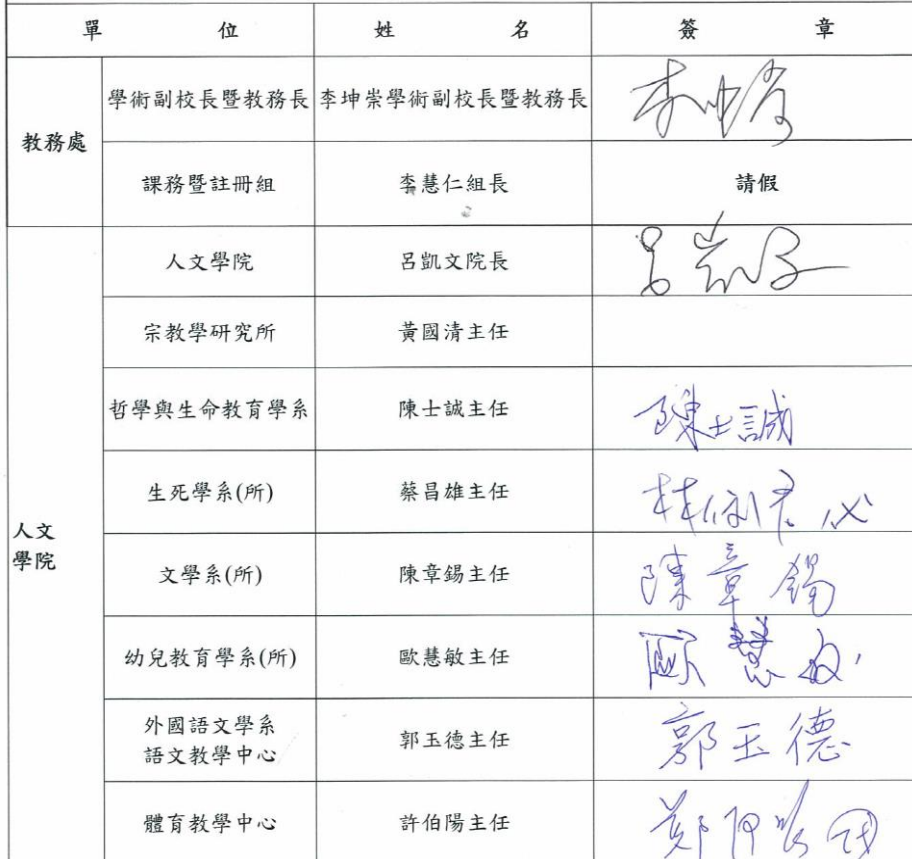 單 位 姓 名 簽 章
教務處
學術副校長暨教務長 李坤崇學術副校長暨教務長 李坤崇
課務暨註冊組 李慧仁組長 請假
人文
學院
人文學院 呂凱文院長 呂凱文
宗教學研究所 黃國清主任
哲學與生命教育學系 陳士誠主任 陳士誠
生死學系(所) 蔡昌雄主任
文學系(所) 陳章錫主任 陳章錫
幼兒教育學系(所) 歐慧敏主任 歐慧敏
外國語文學系
語文教學中心 郭玉德主任 郭玉德
體育教學中心 許伯陽主任